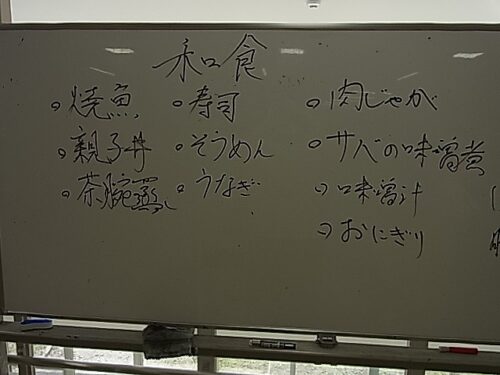 和食
○焼魚 ○寿司 ○肉じゃが
○親子丼 ○そうめん ○サバの味噌煮
○茶腕蒸し ○うなぎ ○味噌汁
○おにぎり